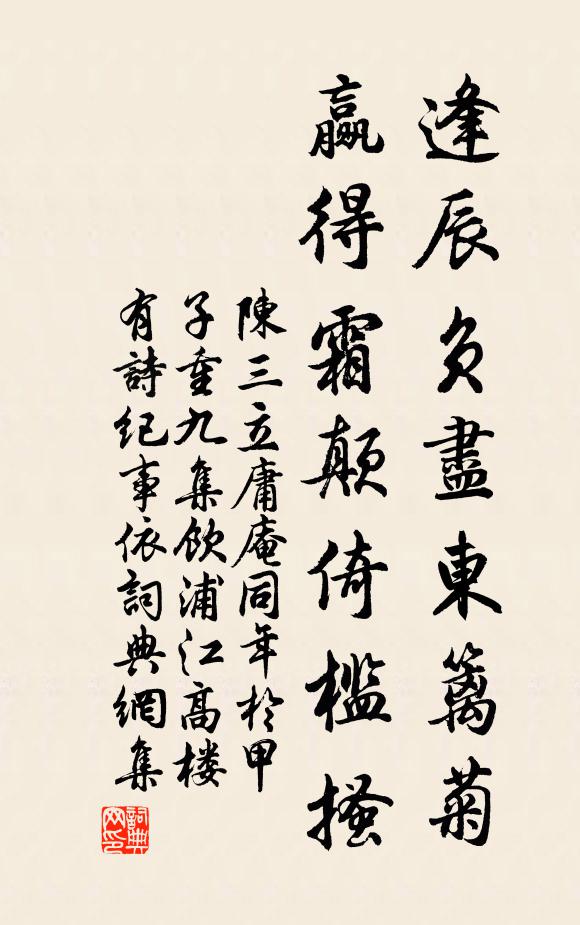 逢辰負盡東籬菊
贏得霜顛倚檻搔
陳三立庸庵同年於甲
子重九集飲浦江高楼
有詩纪事依詞典網集
詞典
网印